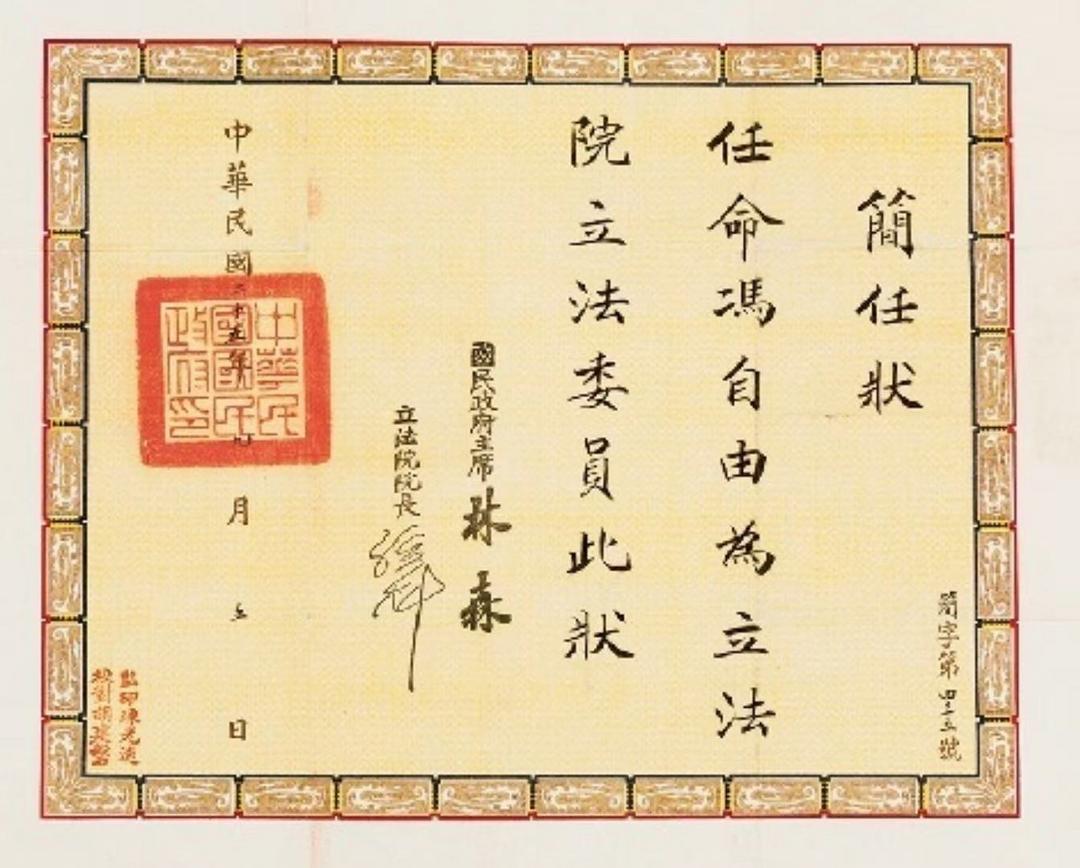 簡任狀
任命馮自由為立法
院立法委員此狀
國民政府主席 林森
立法院院長
中華民國二十五年九月五日
中華民國國民政府印
簡字第四三五號
監印陳光遠
校對